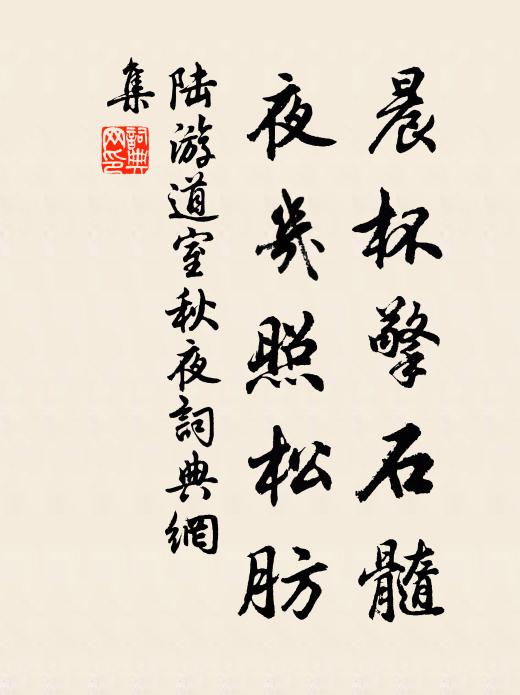 晨杯擎石髓
夜几照松肪
陆游道室秋夜詞典網
集
詞典網印